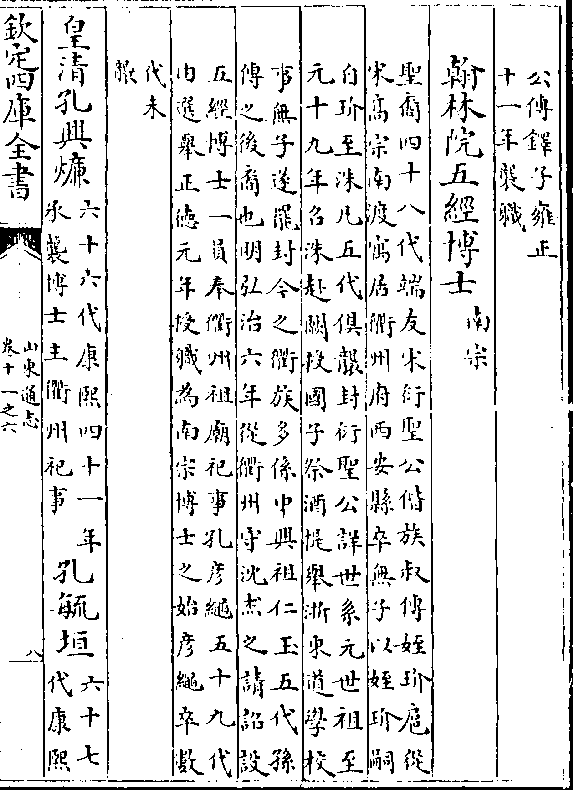 公傅鐸子雍正
十一年襲職
翰林院五經博士 南宗
聖裔四十八代端友宋衍聖公偕族叔傅姪玠扈從
宋高宗南渡寓居衢州府西安縣卒無子以姪玠嗣
自玠至洙凡五代俱襲封衍聖公詳世系元世祖至
元十九年召洙赴闕授國子祭酒提舉浙東道學校
事無子遂罷封今之衢族多係中興祖仁玉五代孫
傅之後裔也明弘治六年從衢州守沈杰之請詔設
五經博士一員奉衢州祖廟祀事孔彦繩五十九代
由選舉正德元年授職為南宗博士之始彦繩卒數
代未
襲
皇清孔興燫 六十六代康熙四十一年
承襲博士主衢州祀事
孔毓垣 六十七
代康熙
欽定四庫全書
山東通志
卷十一之六
八